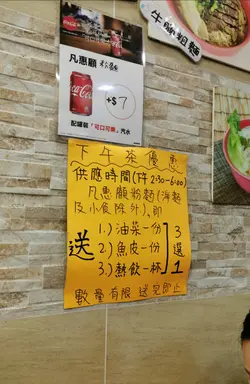 牛腩粗麵
凡惠顧
+$7
配罐裝「可口可樂」汽水
下午茶優惠
供應時間(下午2:30-6:00)
凡惠顧粉麵(海麵
及小食除外)、即
送
1.)油菜一份
2.)魚皮一份
3.)熱飲一杯
3
選
1
數量有限 送完即止